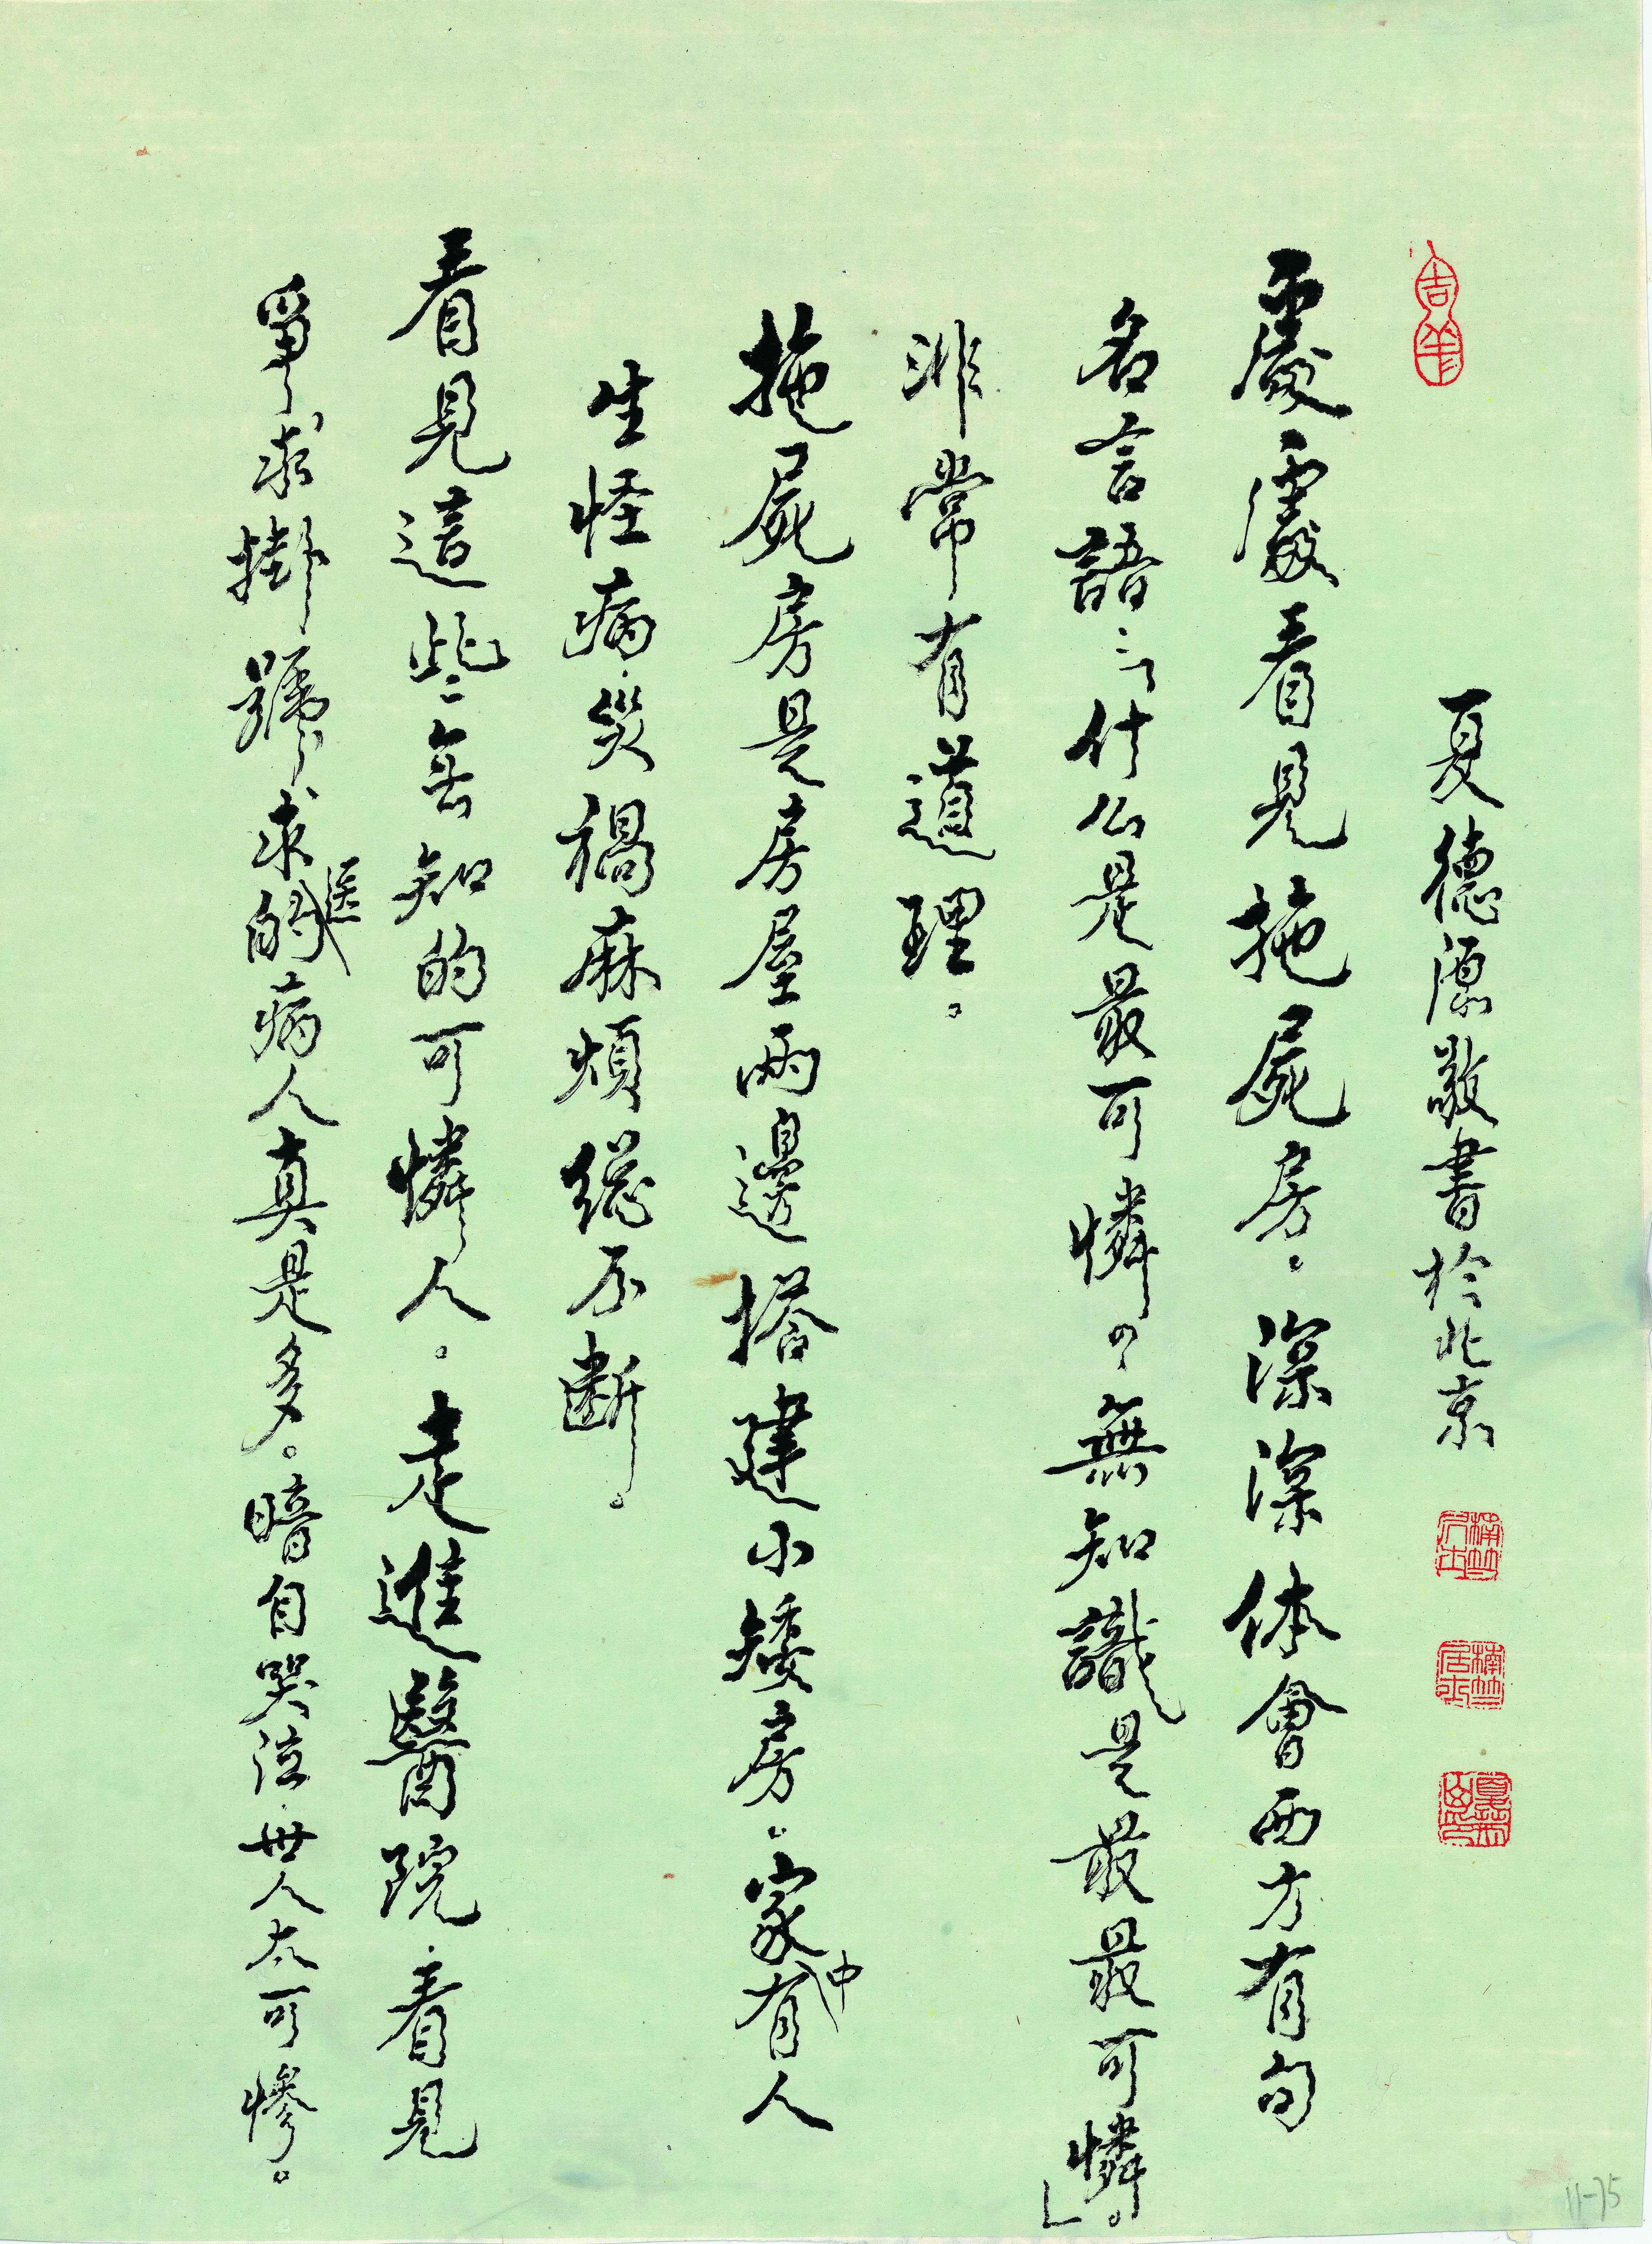 夏德源敬書於北京
處處看見拖屍房。深深体會西方有句
名言語：「什么是最可憐？無知識是最最可憐。」
非常有道理。
拖屍房是房屋兩邊搭建小矮房。家中有人
生怪病、災禍麻煩總不斷。
看見這些無知的可憐人。走進醫院、看見
爭求掛號、求医的病人真是多。暗自哭泣、世人太可慘。
11-75